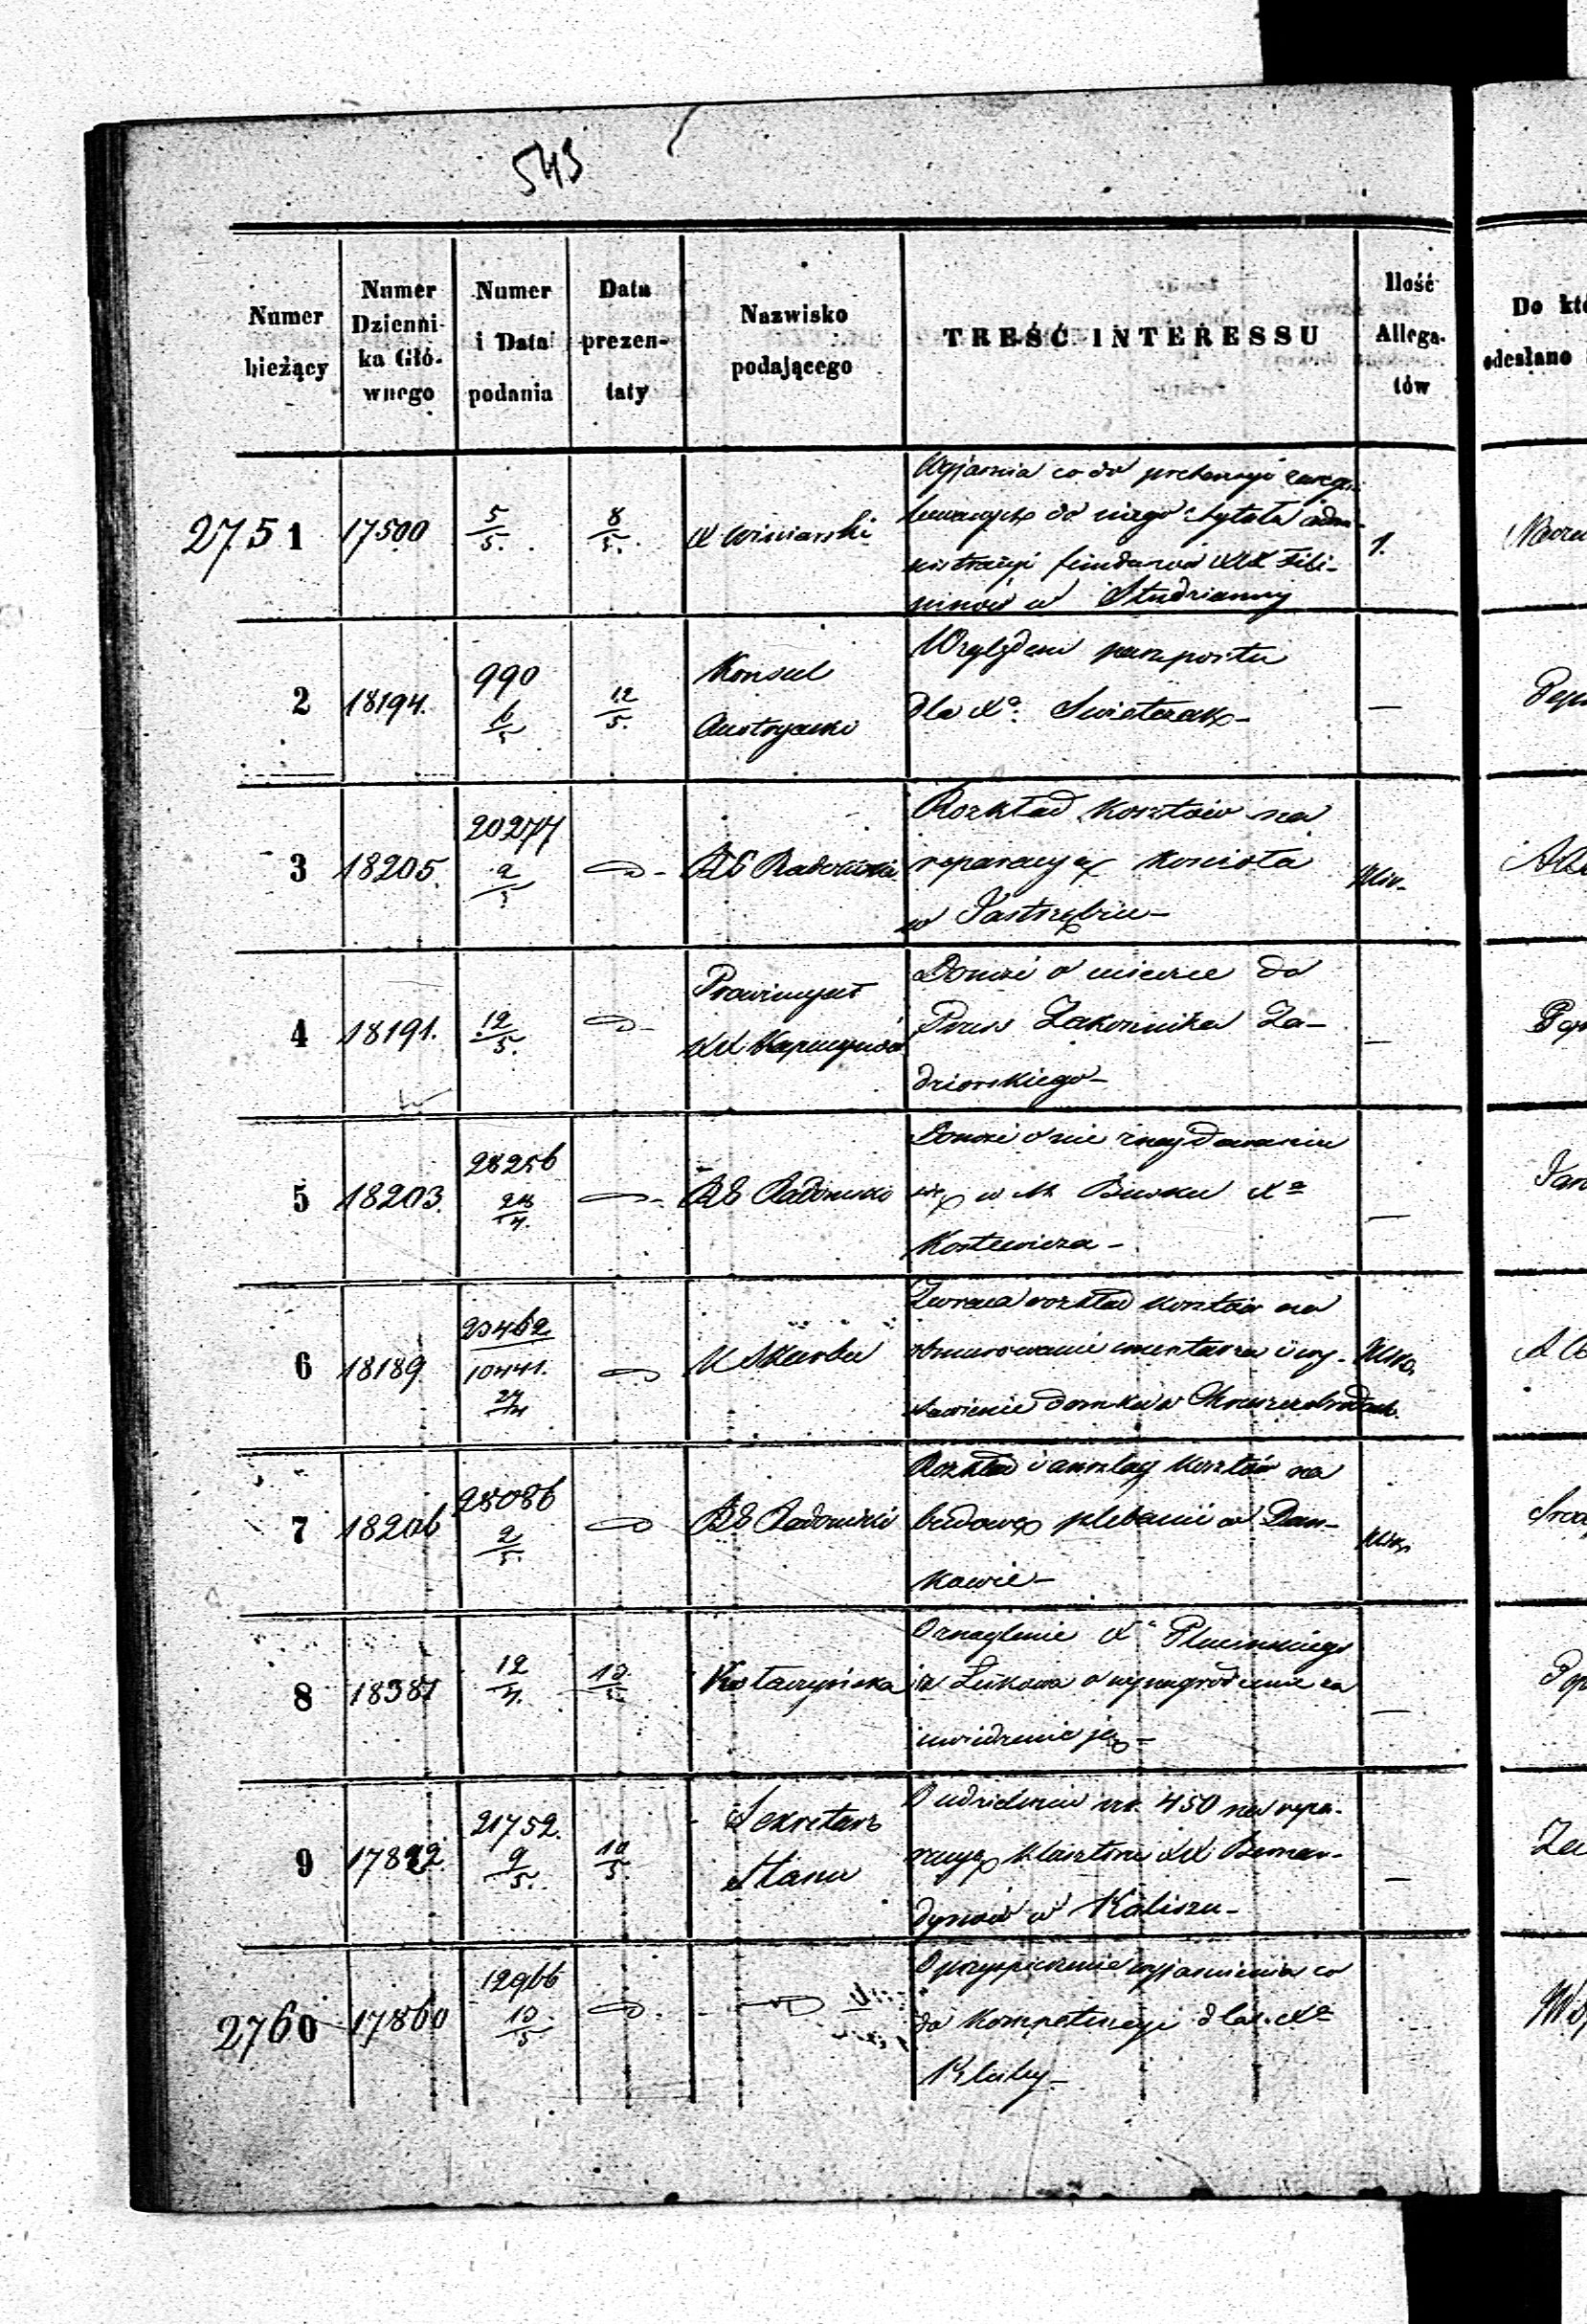 543
Numer bieżący
Numer Dziennika Głównego
Numer i Data podania
Data prezentaty
Nazwisko podającego
TREŚĆ INTERESSU
Ilość Allegatów
Do któ
odesłano
2751 17500 5/5. 8/5. X Winiarski
Wyjaśnia co do pretensyi
do niego z tytułu admi-
nistracyi funduszów XX Fili-
pinów w Studzianny
1.
2 18194. 990 6/5 12/5. Konsul
Austryacki
Względem paszportu
dla Xa. Swietczak
—
3 18205. 20277 2/5 RG Radomski
Rozkład kosztów na
reparacyą kościoła
w Jastrzębiu —
4 18191. 12/5. Prowincyał
XX Kapucynów
Donosi o
Prus Zakonnika Za-
dziorskiego —
—
5 18203. 28256 28/4. RG Radomski
Donosi o nie znajdowaniu
się w M Busku Xa
Kostewicza —
—
6 18189 23462 10441. 27/4 K Skarbu
Zwraca rozkład kosztów na
obmurowanie cmentarza i wy-
stawienie domku w
7 18206 28086 2/5. RG Radomski
Rozkład i anszlag kosztów na
budowę plebanii w Dan-
kowie —
8 18381 12/4. 13/5. Kostaczyńska
O znaglenie Xa
z Łukowa o wynagrodzenie za
uwiedzenie jej —
—
9 17822. 21752. 9/5. 10/5. Sekretarz
Stanu
O udzielenie rs. 450 na repa-
racyę klasztoru XX Bernar-
dynów w Kaliszu —
—
2760 17860 12966 10/5
O przyspieszenie wyjaśnienia co
do kompetencyi dla Xa
Kluby —